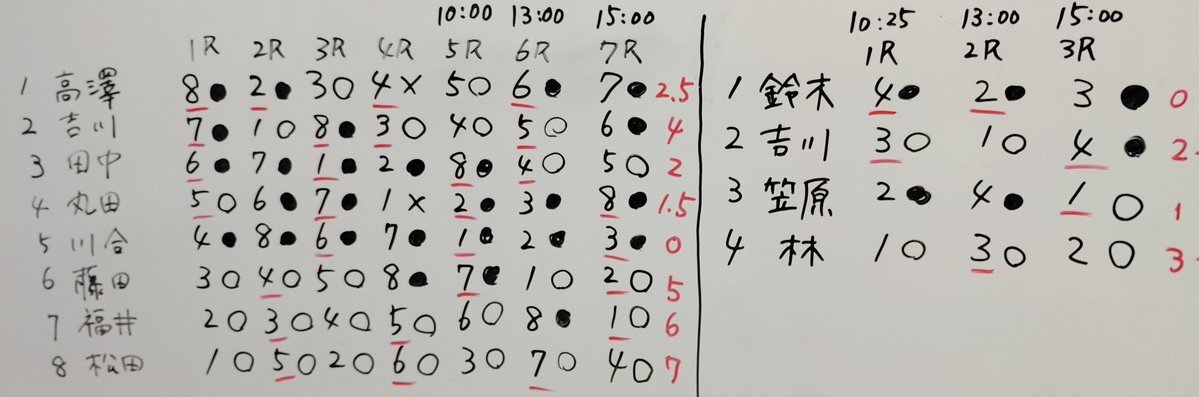 10:00 13:00 15:00
1R 2R 3R 4R 5R 6R 7R
1 高澤 8● 2● 3○ 4× 5○ 6● 7● 2.5
2 吉川 7● 1○ 8● 3○ 4○ 5○ 6● 4
3 田中 6● 7● 1● 2● 8● 4○ 5○ 2
4 丸田 5○ 6● 7● 1× 2● 3● 8● 1.5
5 川合 4● 8● 6● 7● 1● 2● 3● 0
6 藤田 3○ 4○ 5○ 8● 7● 1○ 2○ 5
7 福井 2○ 3○ 4○ 5○ 6○ 8● 1○ 6
8 松田 1○ 5○ 2○ 6○ 3○ 7○ 4○ 7
10:25 13:00 15:00
1R 2R 3R
1 鈴木 4● 2● 3● 0
2 吉川 3○ 1○ 4● 2
3 笠原 2● 4● 1○ 1
4 林 1○ 3○ 2○ 3